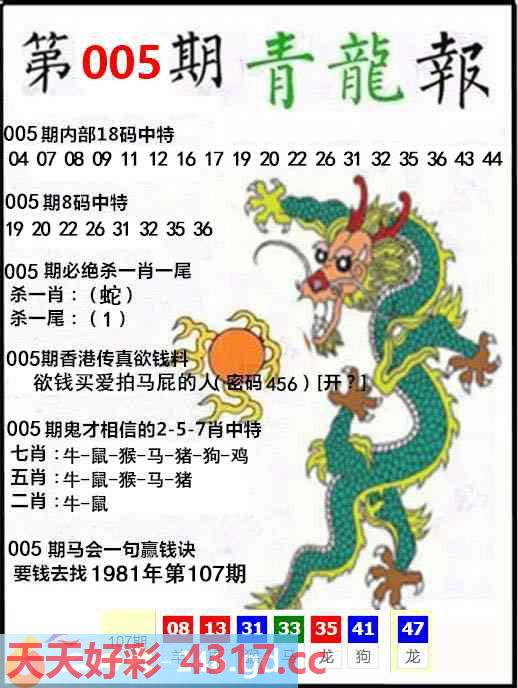 第005期青龍報
005期内部18码中特
04 07 08 09 11 12 16 17 19 20 22 26 31 32 35 36 43 44
005期8码中特
19 20 22 26 31 32 35 36
005 期必绝杀一肖一尾
杀一肖：（蛇）
杀一尾：（1）
005期香港传真欲钱料
欲钱买爱拍马屁的人(密码456)[开？]
005期鬼才相信的2-5-7肖中特
七肖：牛-鼠-猴-马-猪-狗-鸡
五肖：牛-鼠-猴-马-猪
二肖：牛-鼠
005 期马会一句赢钱诀
要钱去找1981年第107期
107期 08 13 31 33 35 41 47
羊 猴 马 龙 狗 龙
天天好彩-4317.cc